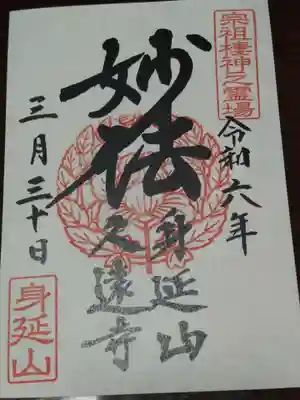 宗祖棲神之霊場
令和六年
妙法
身延山
久遠寺
三月三十日
身延山